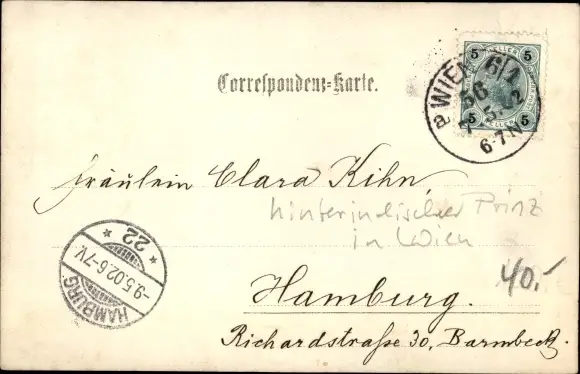 Correspondenz-Karte.
5 5
5 5
WIEN 6/1
56
7 5.02
6-7 N
a
Fräulein Clara Kihn,
hinterindischer Prinz
in Wien
40.-
Hamburg.
Richardstraße 30, Barmbeck.
HAMBURG
-9.5.02.6-7V.
* 22 *